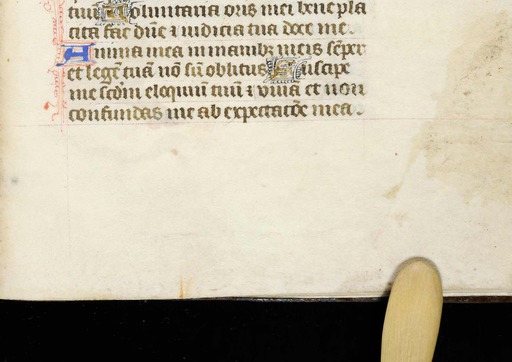 tuū Voluntaria oris mei bene pla
cita fac dn̄e ⁊ iudicia tua doce me.
Anima mea in manibȝ meis sēper
et legē tuā nō sū oblitus Suscipe
me scdm̄ eloquiū tuū ⁊ viuā et non
confundas me ab expectacōe mea.